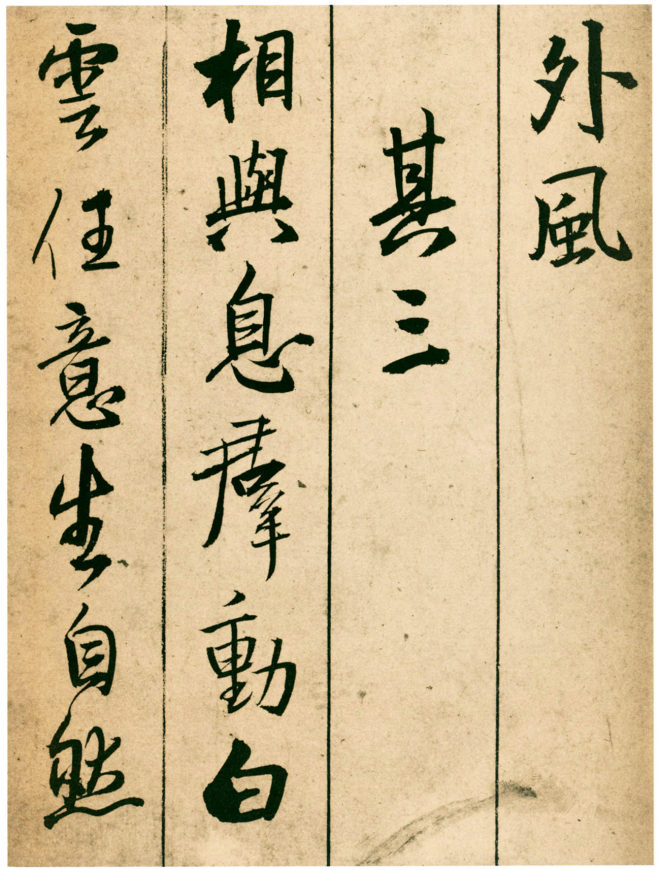 外風
其三
相與息羣動白
雲任意生自然